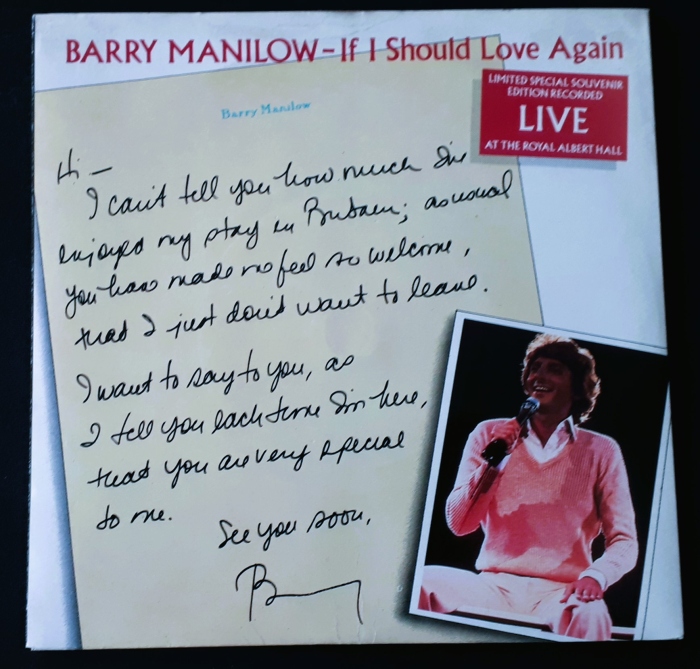 BARRY MANILOW – If I Should Love Again
LIMITED SPECIAL SOUVENIR
EDITION RECORDED
LIVE
AT THE ROYAL ALBERT HALL
Barry Manilow
Hi –
I can't tell you how much I'm
enjoyed my stay in Britain; as usual
you have made me feel so welcome,
that I just don't want to leave.
I want to say to you, as
I tell you each time I'm here,
that you are very special
to me.
See you soon,
Barry